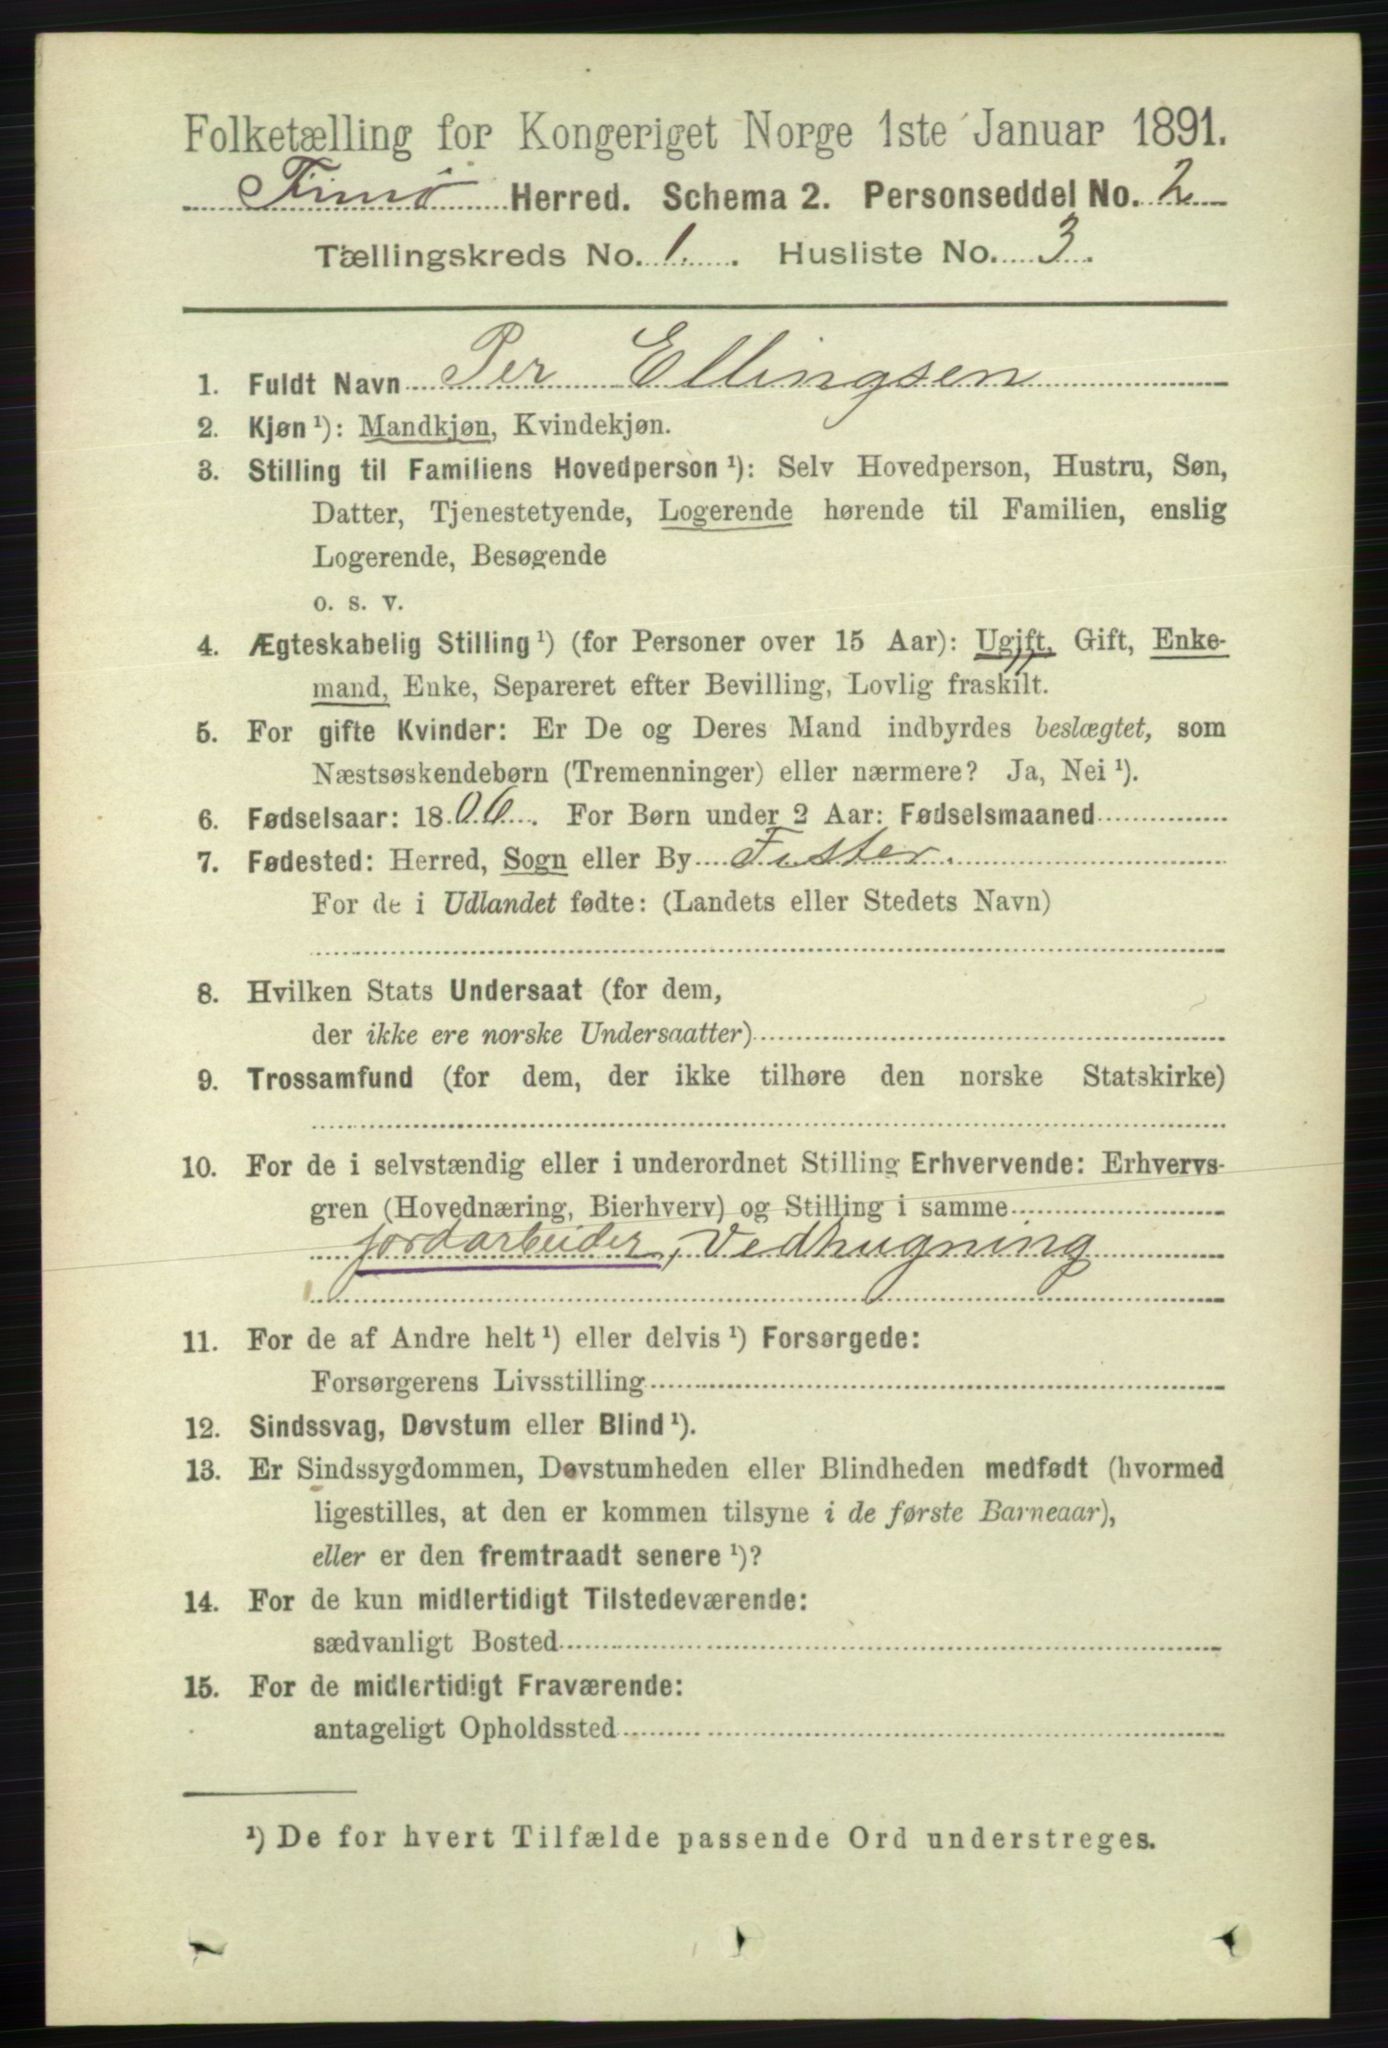 Folketælling for Kongeriget Norge 1ste Januar 1891.
Finnø Herred. Schema 2. Personseddel No. 2
Tællingskreds No. 1. Husliste No. 3.
1. Fuldt Navn Per Ellingsen
2. Kjøn ¹): Mandkjøn, Kvindekjøn.
3. Stilling til Familiens Hovedperson ¹): Selv Hovedperson, Hustru, Søn,
Datter, Tjenestetyende, Logerende hørende til Familien, enslig
Logerende, Besøgende
o. s. v.
4. Ægteskabelig Stilling ¹) (for Personer over 15 Aar): Ugift, Gift, Enke-
mand, Enke, Separeret efter Bevilling, Lovlig fraskilt.
5. For gifte Kvinder: Er De og Deres Mand indbyrdes beslægtet, som
Næstsøskendebørn (Tremenninger) eller nærmere? Ja, Nei ¹).
6. Fødselsaar: 1806. For Børn under 2 Aar: Fødselsmaaned
7. Fødested: Herred, Sogn eller By Fister.
For de i Udlandet fødte: (Landets eller Stedets Navn)
8. Hvilken Stats Undersaat (for dem,
der ikke ere norske Undersaatter)
9. Trossamfund (for dem, der ikke tilhøre den norske Statskirke)
10. For de i selvstændig eller i underordnet Stilling Erhvervende: Erhvervs-
gren (Hovednæring, Bierhverv) og Stilling i samme
jordarbeider, Vedhugning
11. For de af Andre helt ¹) eller delvis ¹) Forsørgede:
Forsørgerens Livsstilling
12. Sindssvag, Døvstum eller Blind ¹).
13. Er Sindssygdommen, Døvstumheden eller Blindheden medfødt (hvormed
ligestilles, at den er kommen tilsyne i de første Barneaar),
eller er den fremtraadt senere ¹)?
14. For de kun midlertidigt Tilstedeværende:
sædvanligt Bosted
15. For de midlertidigt Fraværende:
antageligt Opholdssted
¹) De for hvert Tilfælde passende Ord understreges.